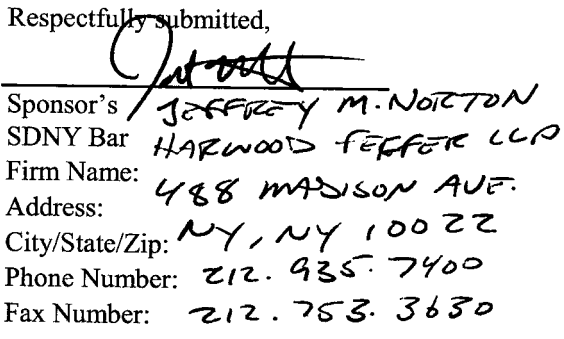 Respectfully submitted,
Sponsor's JEFFREY M. NORTON
SDNY Bar HARWOOD FEFFER LLP
Firm Name: 488 MADISON AVE.
Address:
City/State/Zip: NY, NY 10022
Phone Number: 212. 935. 7400
Fax Number: 212. 753. 3630